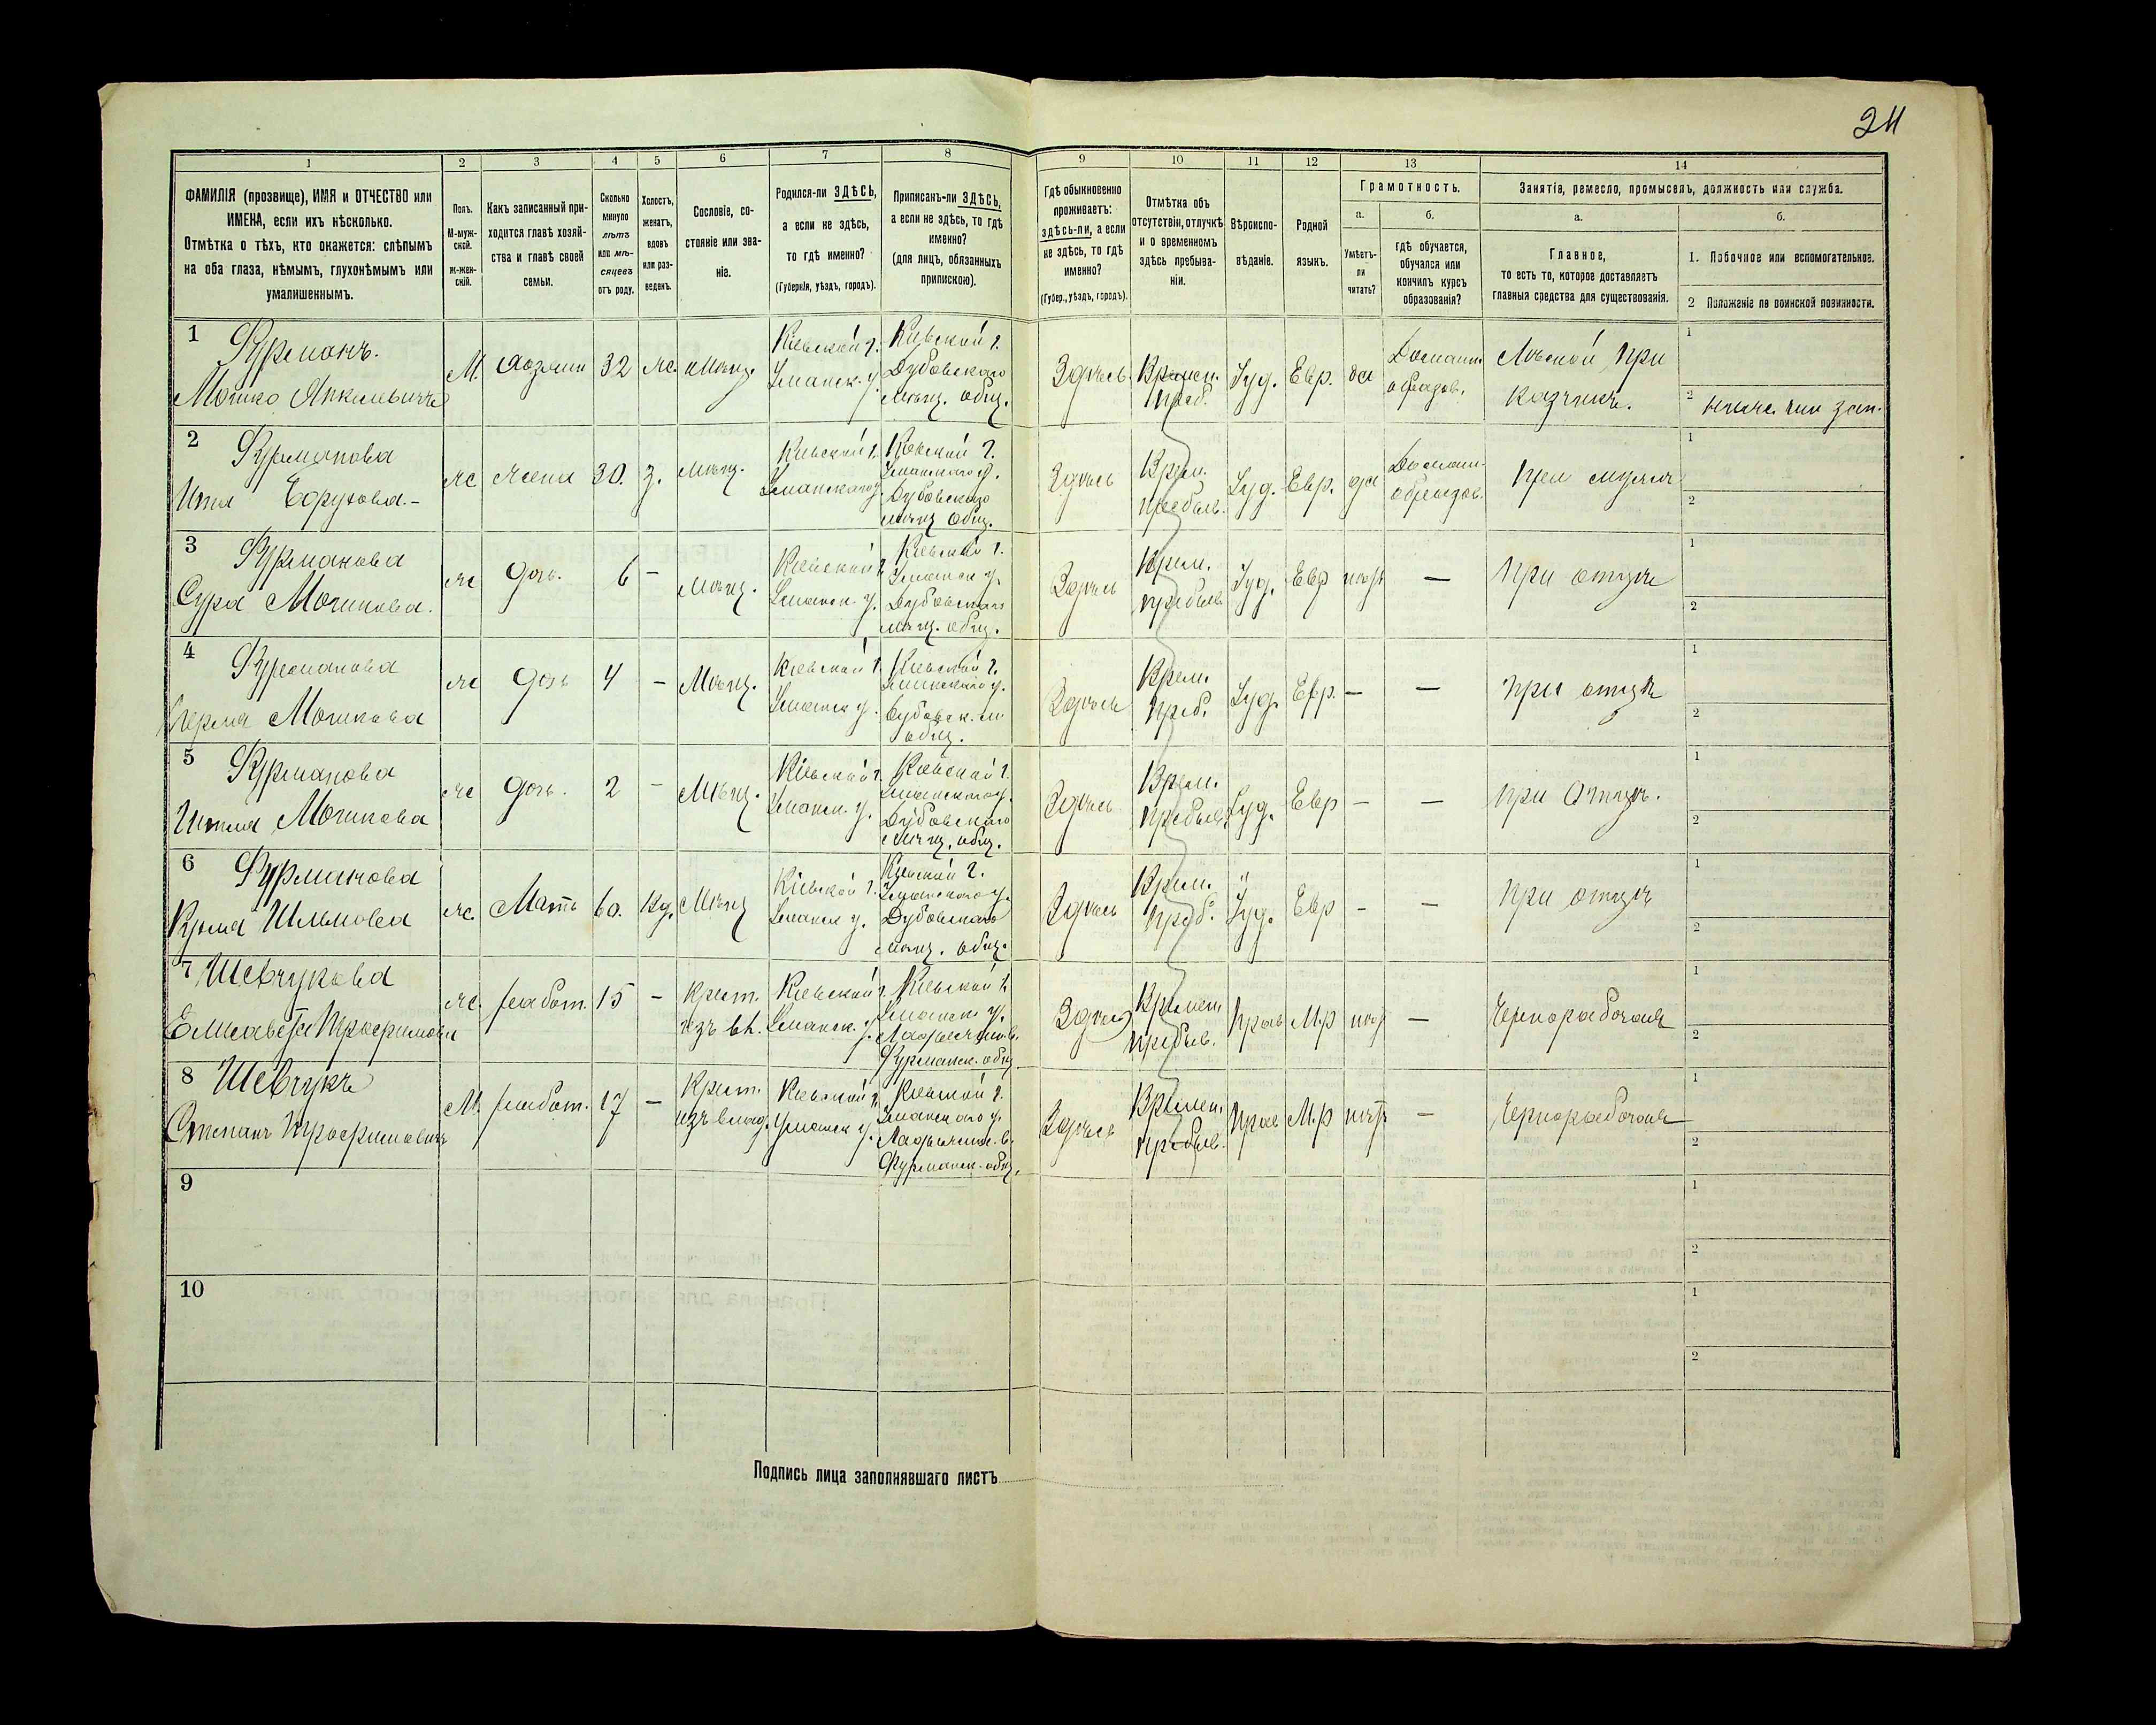 24
1 2 3 4 5 6 7 8 9 10 11 12 13 14
ФАМИЛІЯ (прозвище), ИМЯ и ОТЧЕСТВО или
ИМЕНА, если ихъ нѣсколько.
Отмѣтка о тѣхъ, кто окажется: слѣпымъ
на оба глаза, нѣмымъ, глухонѣмымъ или
умалишеннымъ.
Полъ.
М-муж-
ской.
ж-жен-
скій.
Какъ записанный при-
ходится главѣ хозяй-
ства и главѣ своей
семьи.
Сколько
минуло
лѣтъ
или мѣ-
сяцевъ
отъ роду.
Холостъ,
женатъ,
вдовъ
или раз-
веденъ.
Сословіе, со-
стояніе или зва-
ніе.
Родился-ли ЗДѢСЬ,
а если не здѣсь,
то гдѣ именно?
(Губернія, уѣздъ, городъ).
Приписанъ-ли ЗДѢСЬ,
а если не здѣсь, то гдѣ
именно?
(для лицъ, обязанныхъ
припискою).
Гдѣ обыкновенно
проживаетъ:
здѣсь-ли, а если
не здѣсь, то гдѣ
именно?
(Губер., уѣздъ, городъ).
Отмѣтка объ
отсутствіи, отлучкѣ
и о временномъ
здѣсь пребыва-
ніи.
Вѣроиспо-
вѣданіе.
Родной
языкъ.
Грамотность.
а.
Умѣетъ-
ли
читать?
б.
гдѣ обучается,
обучался или
кончилъ курсъ
образованія?
Занятіе, ремесло, промыселъ, должность или служба.
а.
Главное,
то есть то, которое доставляетъ
главныя средства для существованія.
б.
1. Побочное или вспомогательное.
2 Положеніе по воинской повинности.
1 Фурманъ.
Мошко Янкелевичъ
М.
хозяин
32
ж.
Мѣщ.
Кіевской г.
Уманск. у.
Кіевской г.
Дубовскаго
мѣщ. общ.
Здѣсь.
Времен.
преб.
Іуд.
Евр.
да
Домашн.
образов.
Лѣсной при
1
2
2 Фурманова
Ита
ж
жена
30.
з.
мѣщ.
Кіевской г.
Уманскаго у.
Кіевской г.
Уманскаго у.
Дубовскаго
мѣщ общ.
Здѣсь
Врем.
пребыв.
Іуд.
Евр.
да
Домашн.
образов.
При мужѣ
1
2
3 Фурманова
Сура Мошкова.
ж
дочь.
6
–
мѣщ.
Кіевской г.
Уманск. у.
Кіевской г.
Уманск у.
Дубовскаго
мѣщ. общ.
Здѣсь
Врем.
пребыв
Іуд.
Евр
нѣтъ
—
При отцѣ
1
2
4 Фурманова
Мошкова
ж
дочь
4
–
Мѣщ.
Кіевской г.
Уманск у.
Кіевской г.
Уманскаго у.
Дубовск. м
общ.
Здѣсь
Врем.
преб.
Іуд.
Евр.
—
—
при отцѣ
1
2
5 Фурманова
Мошкова
ж
дочь.
2
–
Мѣщ.
Кіевской г.
Уманск. у.
Кіевской г.
Уманскаго у.
Дубовскаго
мѣщ. общ.
Здѣсь
Врем.
пребыв.
Іуд.
Евр
–
–
при отцѣ.
1
2
6 Фурманова
ж.
Мать
60.
Вд.
Мѣщ
Кіевской г.
Уманск у.
Кіевской г.
Уманскаго у.
Дубовскаго
мѣщ. общ.
Здѣсь
Врем.
преб.
Іуд.
Евр
–
–
при отцѣ
1
2
7 Шевчукова
Елисавета Трофимовна
ж.
работ.
15
–
крест.
изъ вл.
Кіевской г.
Уманск. у.
Кіевской г.
Уманск у.
Ладыжинс. в.
Фурманск. общ
Здѣсь
Времен.
пребыв.
прав
М.р
нѣтъ
—
Чернорабочая
1
2
8 Шевчукъ
Степанъ Трофимовичъ
М.
работ.
17
–
Крест.
изъ влад.
Кіевской г.
Уманск у.
Кіевской г.
Уманскаго у.
Ладыжинс. в.
Фурманск. общ.
Здѣсь
Времен.
пребыв.
прав
М.р
нѣтъ
—
1
2
9
1
2
10
1
2
Подпись лица заполнявшаго листъ